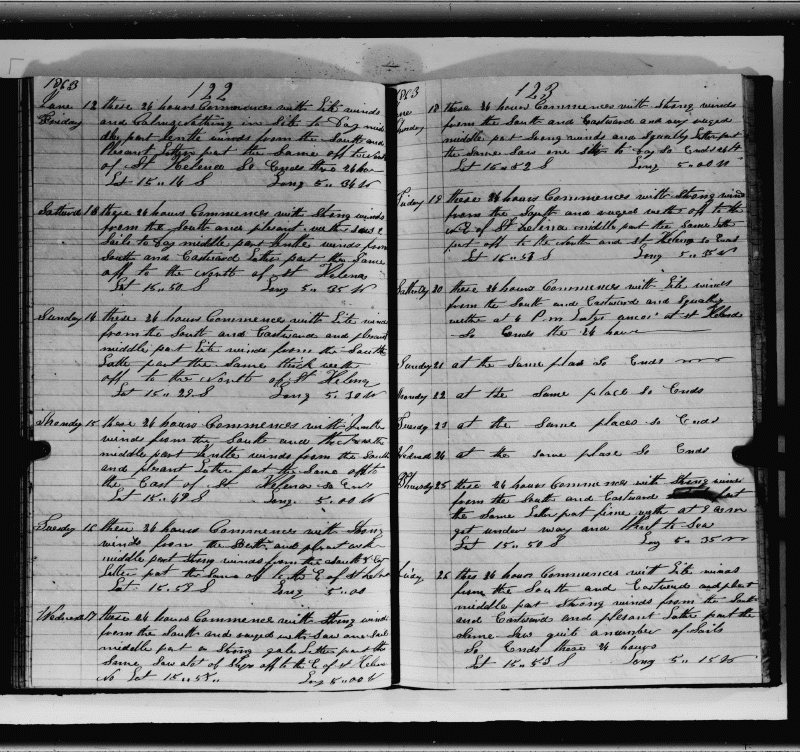 1863
122
June 12 these 24 hours Commences with Lite winds
Friday and Calms nothing in Site to Day mid
dle part Gentle winds from the South and
Plesant Latter part the Same off
of St Helena So Ends these 24 hours
Lat 15,,14 S Long 5,,34 W
Satturd 13 these 24 hours Commences with Strong winds
from the South and plesant wether Saw 2
Sails to Day middle part Gentle winds from
South and Eastward Latter part the Same
off to the North of St Helena
Lat 15,,50 S Long 5,,35 W
Sunday 14 these 24 hours Commences with Lite winds
from the South and Eastward and plesant
middle part Lite winds from the South
Latter part the Same thick wether
off to the North of St Helena
Lat 15,,29 S Long 5,,30 W
Monday 15 these 24 hours Commences with Gentle
winds from the South and thick wether
middle part Gentle winds from the South
and plesant Latter part the Same off to
the East of St Helena So Ends
Lat 15,,49 S Long 5,,00 W
Tuesday 16 these 24 hours Commences with Strong
winds from the South and plesant wether
middle part Strong winds from the South &
Latter part the Same off to the E of St Helena
Lat 15,,58 S Long 5,,00
Wednesd 17 these 24 hours Commences with Strong winds
from the South and ruged wether Saw one Sail
middle part a Strong gale Latter part the
Same Saw a lot of Ships off to the E of St Helena
No Lat 15,,58,, Long 5,,00 W
1863
123
June 18 these 24 hours Commences with Strong winds
Thursday from the South and Eastward and very ruged
middle part Strong winds and Squally Latter part
the Same Saw one Ship to Day So Ends 24 h
Lat 15,,52 S Long 5,,00 W
Friday 19 these 24 hours Commences with Strong winds
from the South and ruged wether off to the
N E of St Helena middle part the Same Latter
part off to the North and St Helena So Ends
Lat 15,,58 S Long 5,,35 W
Satturday 20 these 24 hours Commences with Lite winds
from the South and Eastward and Squally
wether at 4 P m Lets go ancor at St Helena
So Ends the 24 hours
Sunday 21 at the Same plase So Ends
Monday 22 at the Same place So Ends
Tuesdy 23 at the Same places So Ends
Wednesd 24 at the Same plase So Ends
Thursdy 25 these 24 hours Commences with Strong winds
from the South and Eastward part
the Same Latter part fine wether at 9 a m
got under way and went to Sea
Lat 15,,50 S Long 5,,35
Friday 26 these 24 hours Commences with Lite winds
from the South and Eastward and plesant
middle part Strong winds from the South
and Eastward and plesant Latter part the
Same Saw quite a number of Sails
So Ends these 24 hours
Lat 15,,53 S Long 5,,15 W